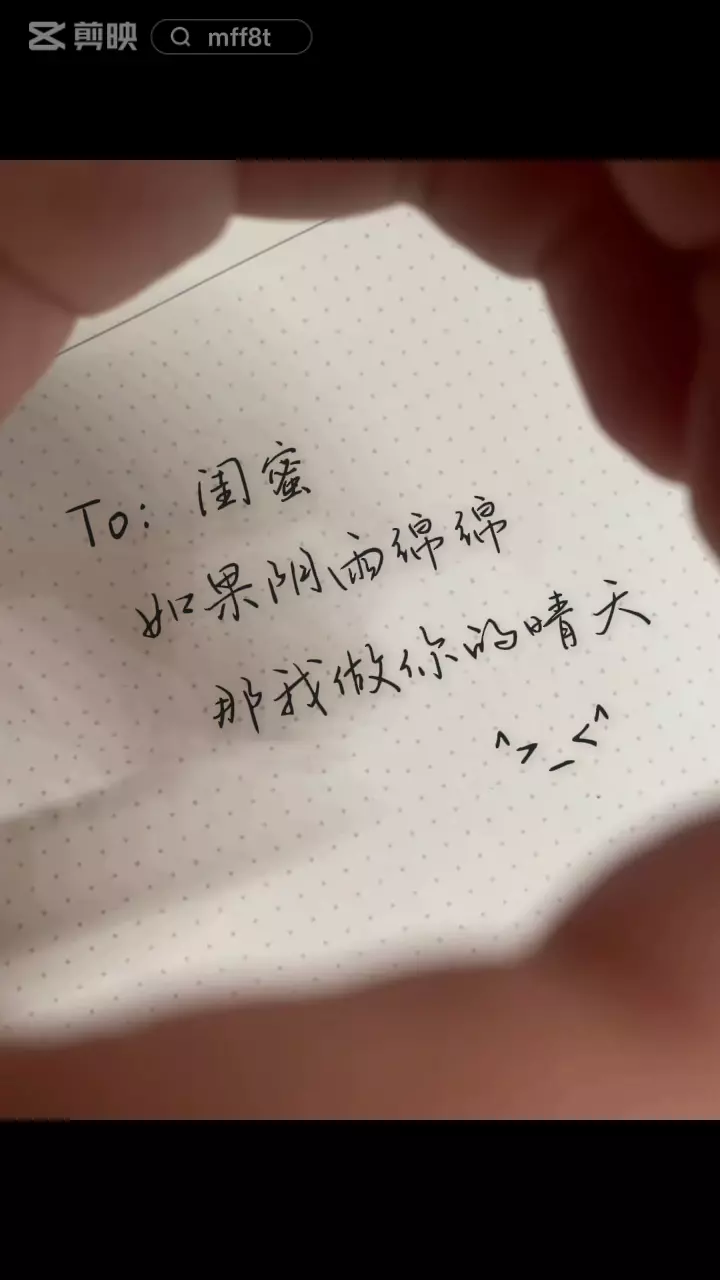 剪映 mff8t
To: 闺蜜
如果阴雨绵绵
那我做你的晴天
^>_<^